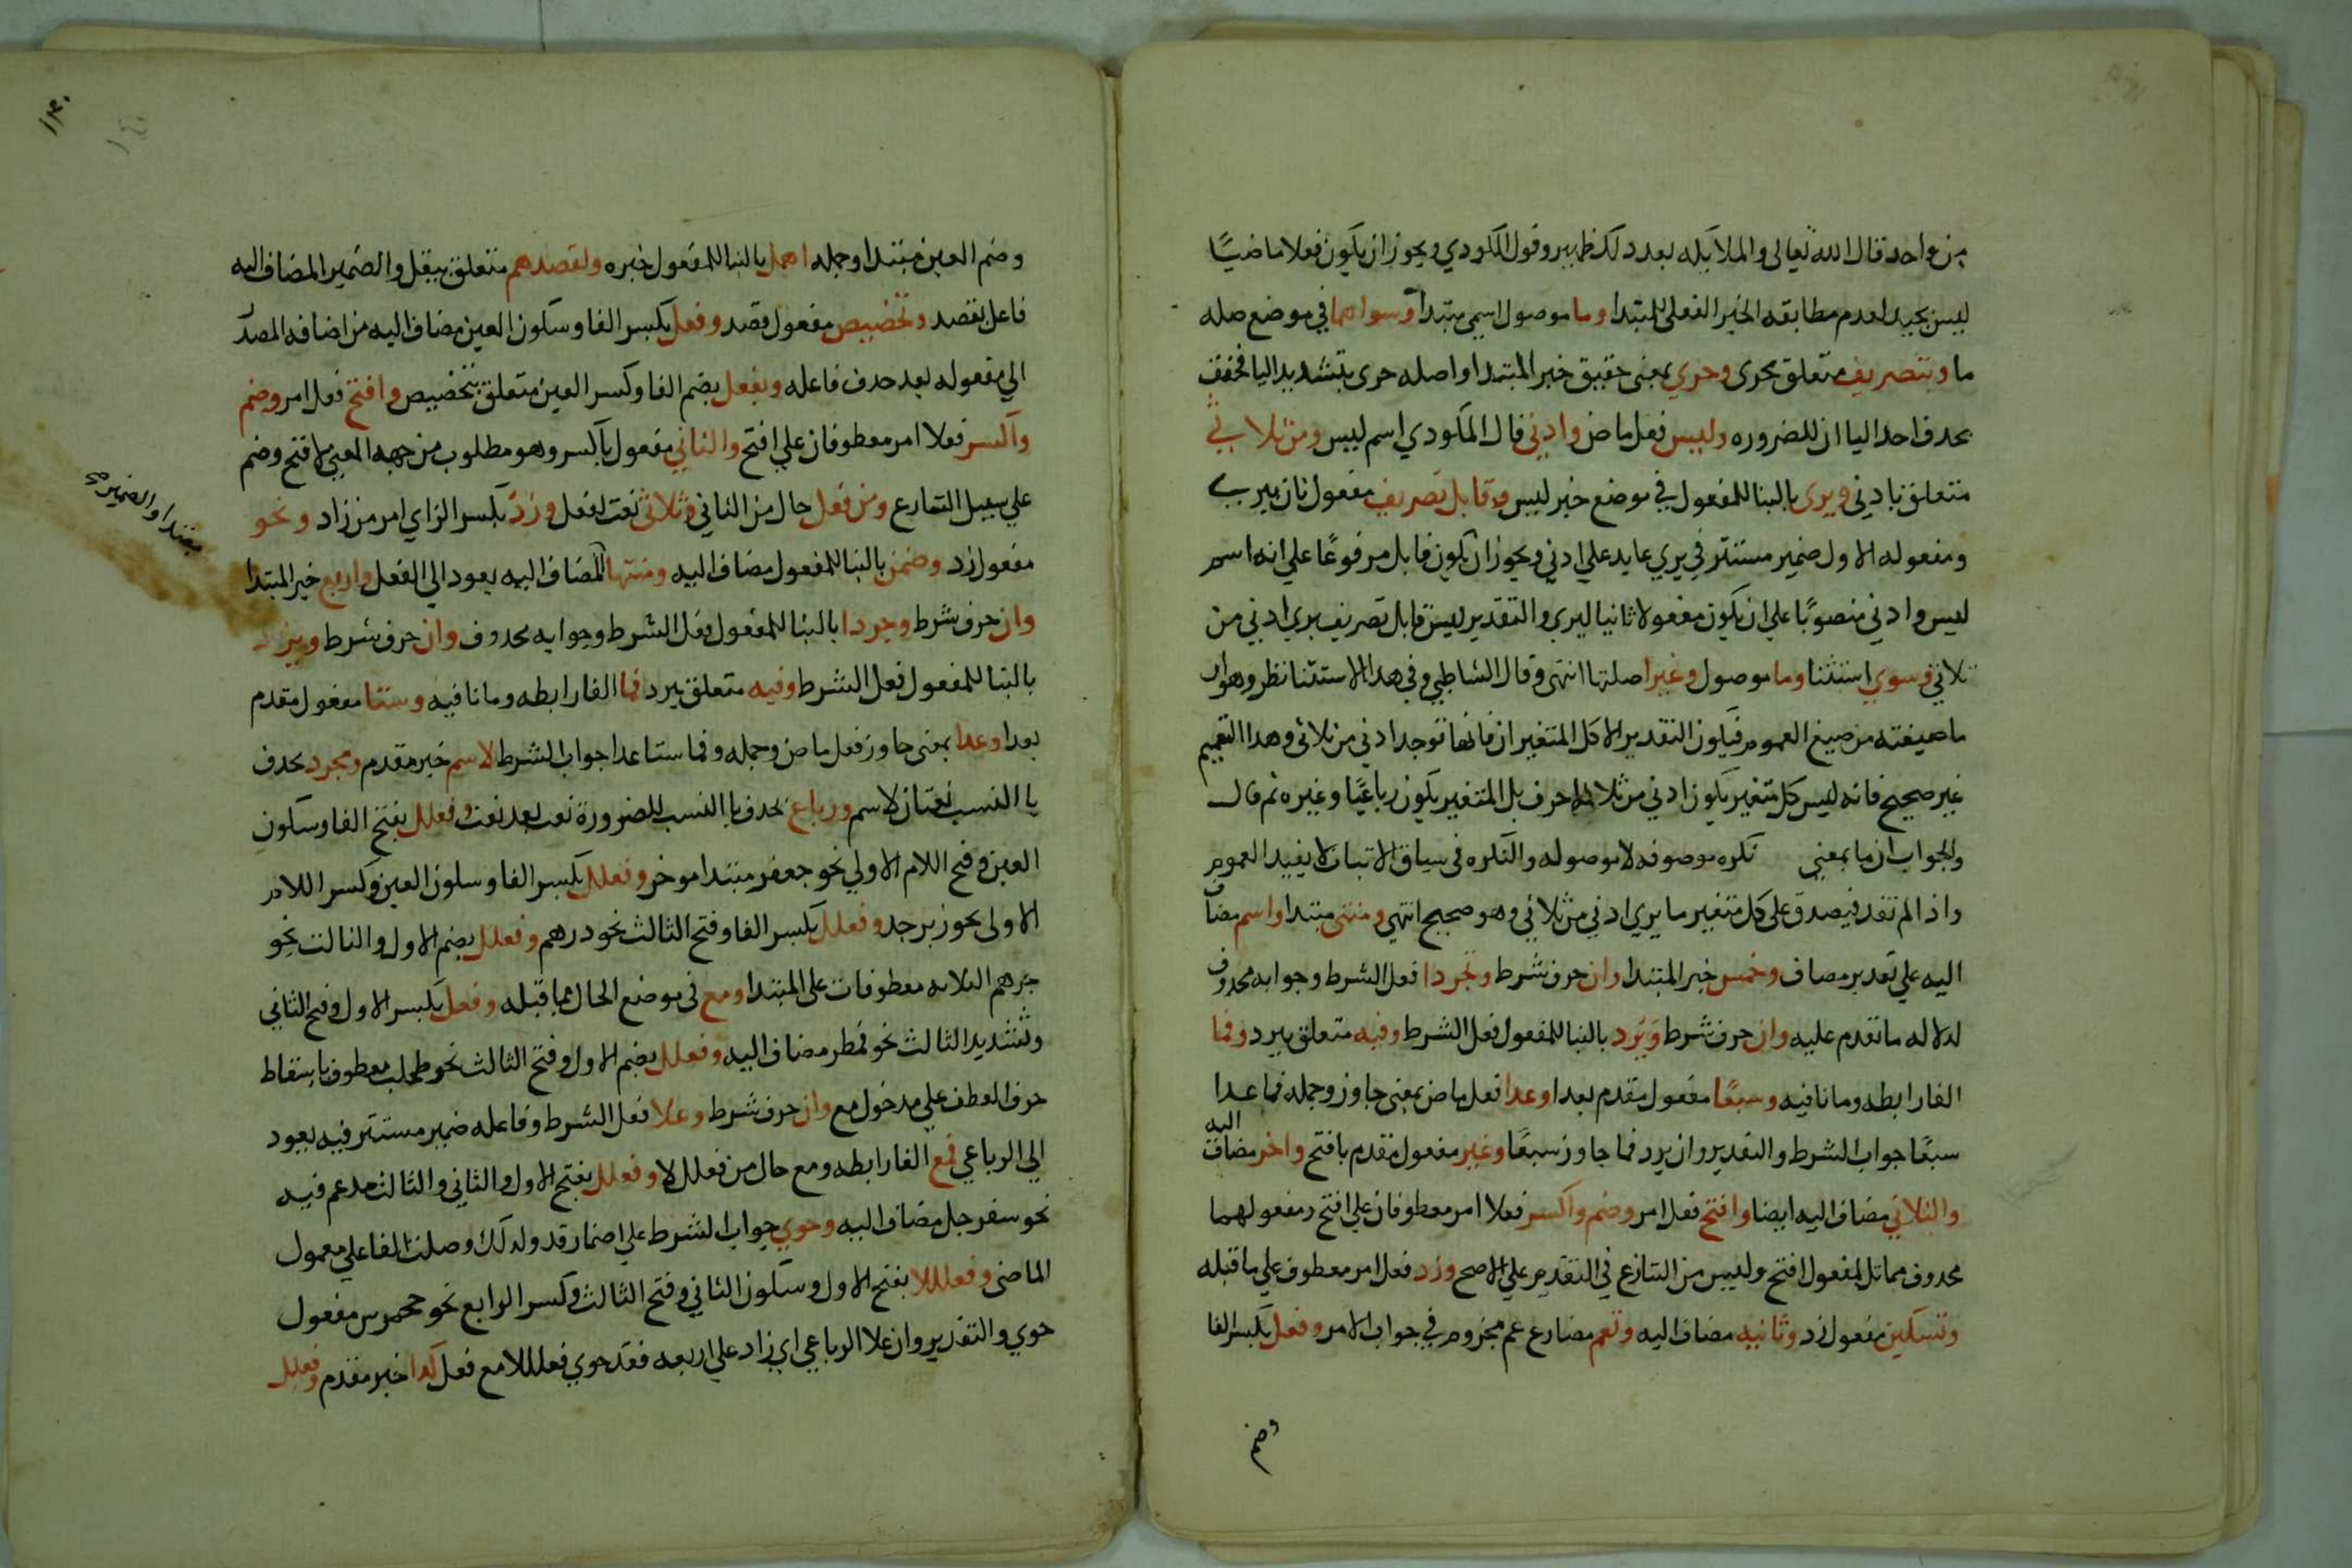 من واحد قال الله تعالى والملائكه بعد ذلك ظهير وقول المكودي ويجوز ان يكون فعلا ماضيًا
ليس بجيد لعدم مطابقه الخبر الفعلي للمبتدا وما موصول اسمي مبتدا وسواهما في موضع صله
ما وبتصريف متعلق بحرى وحري بمعنى حقيق خبر المبتدا واصله حرى بتشديد اليا فخفف
بحدف احد اليا ان للضروره وليس فعل ماض وادني قال المكودي اسم ليس ومن ثلاثي
متعلق بادني ويرى بالبنا للمفعول في موضع خبر ليس وقابل تصريف مفعول ثان ليري
ومفعوله الاول ضمير مستتر في يري عايد على ادني ويجوز ان يكون قابل مرفوعًا علي انه اسم
ليس وادني منصوبًا علي ان يكون مفعولا ثانيا ليري والتقدير ليس قابل تصريف يري ادني من
ثلاثي وسوي استثنا وما موصول وغيرا صلتها انتهى وقال الشاطبي وفي هدا الاستثنا نظر وهو ان
ما صيغته من صيغ العموم فيكون التقدير الا كل المتغير ان فانها توجد ادني من ثلاثى وهدا التعميم
غير صحيح فانه ليس كل متغير يكون ادني من ثلاثه احرف بل المتغير يكون رباعيًا وغيره ثم قال
والجواب ان ما بمعنى نكره موصوفه لا موصوله والنكره فى سياق الاثبات لا يفيد العموم
واذا لم تفد فيصدق على كل متغير ما يري ادني من ثلاثي وهو صحيح انتهي ومنتهى مبتدا واسم مضاف
اليه علي تقدير مضاف وخمس خبر المبتدا وان حرف شرط وتجردا فعل الشرط وجوابه محدوف
لدلاله ما تقدم عليه وان حرف شرط ويزد بالبنا للمفعول فعل الشرط وفيه متعلق بيزد وفما
الفا رابطه وما نافيه وسبعًا مفعول مقدم بعدا وعدا فعل ماض بمعنى جاوز وجمله فما عدا
سبعًا جواب الشرط والتقدير وان يزد فما جاوز سبعًا وغير مفعول مقدم بافتح واخر مضاف اليه
والثلاثي مضاف اليه ايضا وافتح فعل امر وضم واكسر فعلا امر معطوفان علي افتح ومفعولهما
محدوف مماثل لمفعول افتح وليس من التنازع في التقدم علي الاصح وزد فعل امر معطوف علي ما قبله
وتسكين مفعول زد وثانيه مضاف اليه وتعم مضارع عم مجزوم في جواب الامر وفعل بكسر الفا
وضم
١٣٠
١٤٠
وضم العين مبتدا وجمله اهمل بالبنا للمفعول خبره ولقصدهم متعلق بيقل والضمير المضاف اليه
فاعل بقصد وتخصيص مفعول قصد وفعل بكسر الفا وسكون العين مضاف اليه من اضافه المصدر
الي مفعوله بعد حدف فاعله وبفعل بضم الفا وكسر العين متعلق بتخصيص وافتح فعل امر وضم
واكسر فعلا امر معطوفان علي افتح والثاني مفعول باكسر وهو مطلوب من جهه المعني لافتح وضم
علي سبيل التنازع ومن فعل حال من الثاني وثلاثى نعت لفعل وزد بكسر الزاي امر من زاد ونحو
مفعول زد وضمن بالبنا للمفعول مضاف اليه ومنتهاه المضاف اليه يعود الي الفعل واربع خبر المبتدا
مبتدا والضمير صح
وان حرف شرط وجردا بالبنا للمفعول فعل الشرط وجوابه محدوف وان حرف شرط ويزد
بالبنا للمفعول فعل الشرط وفيه متعلق بيزد فما الفا رابطه وما نافيه وستا مفعول مقدم
بعدا وعدا بمعنى جاوز فعل ماض وجمله وفما ستا عدا جواب الشرط لاسم خبر مقدم ومجرد بحدف
يا النسب نعتان لاسم ورباع بحدف يا النسب للضرورة نعت بعد نعت وفعلل بفتح الفا وسكون
العين وفتح اللام الاولي نحو جعفر مبتدا موخر وفعلل بكسر الفا وسكون العين وكسر اللام
الاولى نحو زبرجد وفعلل بكسر الفا وفتح الثالث نحو درهم وفعلل بضم الاول والثالث نحو
جرهم الثلاثه معطوفات على المبتدا ومع فى موضع الحال مما قبله وفعل بكسر الاول وفتح الثاني
وتشديد الثالث نحو قمطر مضاف اليه وفعلل بضم الاول وفتح الثالث نحو طحلب معطوف باسقاط
حرف العطف علي مدخول مع وان حرف شرط وعلا فعل الشرط وفاعله ضمير مستتر فيه يعود
الي الرباعي فمع الفا رابطه ومع حال من فعلللا وفعلل بفتح الاول والثاني والثالث مدغم فيه
نحو سفرجل مضاف اليه وحوي جواب الشرط علي اضمار قد ولدلك وصلت الفا علي معمول
الماضى وفعلللا بفتح الاول وسكون الثاني وفتح الثالث وكسر الرابع نحو جحمرس مفعول
حوي والتقدير وان علا الرباعي اي زاد علي اربعه فقد حوي فعلللا مع فعلل كدا خبر مقدم وفعلل